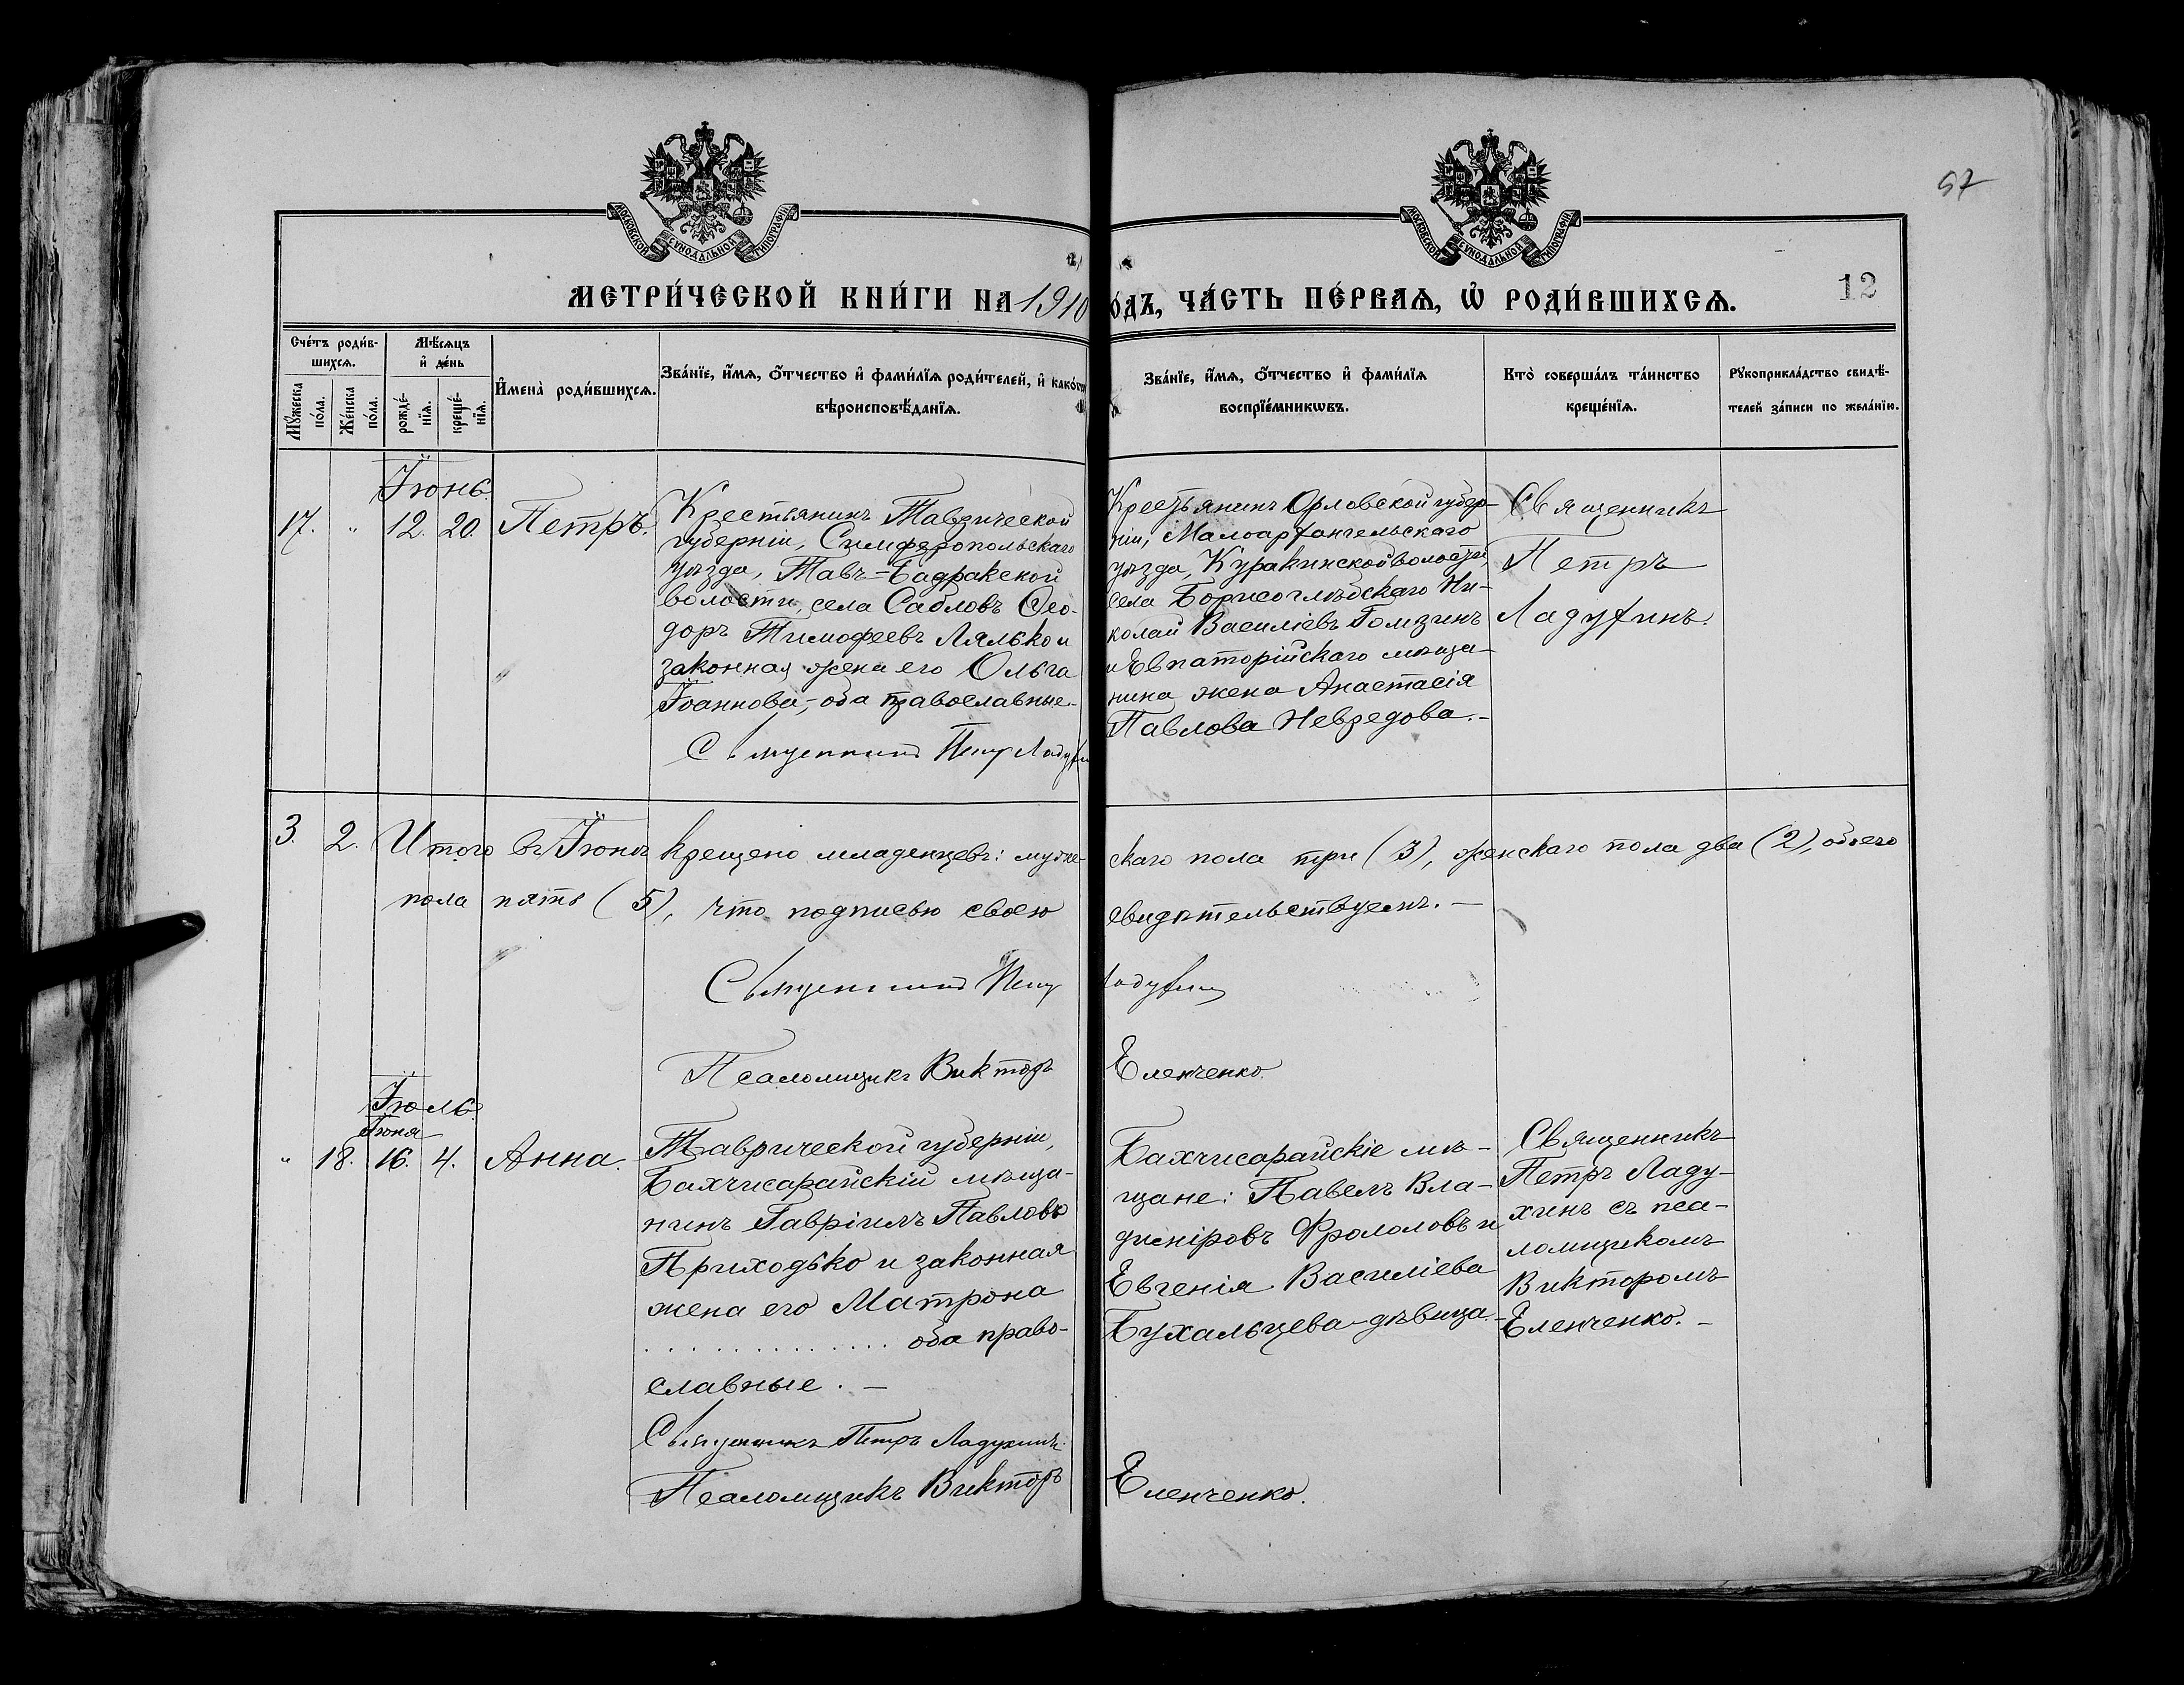 57
МОСКОВСКОЙ СУНОДАЛЬНОЙ ТИПОГРАФІИ
МОСКОВСКОЙ СУНОДАЛЬНОЙ ТИПОГРАФІИ
МЕТРИ́ЧЕСКОЙ КНИ́ГИ НА 1910
О́ДЪ, ЧА́СТЬ ПЕ́РВАѦ, Ѡ҆ РОДИ́ВШИХСѦ.
12
Сче́тъ роди́в-
шихсѧ.
Мꙋ́жеска по́ла.
Же́нска по́ла.
Мѣ́сѧцъ
и҆ де́нь
рожде́-
нїѧ.
креще́-
нїѧ.
И҆мена̀ роди́вшихсѧ.
Зва́нїе, и҆́мѧ, ѻ҆́тчество и҆ фами́лїѧ роди́телей, и҆ како́гѡ
вѣроисповѣ́данїѧ.
Зва́нїе, и҆́мѧ, ѻ҆́тчество и҆ фами́лїѧ
воспрїе́мникѡвъ.
Кто̀ соверша́лъ та́инство
креще́нїѧ.
Рꙋкоприкла́дство свидѣ́-
телей за́писи по жела́нїю.
Іюнь.
17. " 12. 20. Петръ.
Крестьянинъ Таврической
губерніи, Симферопольскаго
уѣзда, Тавъ=Бадракской
волости, села Сабловъ Ѳео-
доръ Тимофеевъ Лялько и
законная жена его Ольга
Іоаннова,-оба православные.-
Священникъ Петръ Ладухи
Крестьянинъ Орловской губер-
ніи, Малоархангельскаго
уѣзда, Куракинской волости,
села Борисоглѣбскаго Ни-
колай Василіевъ Гомзинъ
и Евпаторійскаго мѣща-
нина жена Анастасія
Павлова Невредова.-
Священникъ
Петръ
Ладухинъ.
3. 2. Итого въ Іюнѣ крещено младенцевъ: муже-
скаго пола три (3), женскаго пола два (2), обоего
пола пять (5), что подписью своею
свидѣтельствуемъ.-
Священникъ Петръ
Ладухинъ
Псаломщикъ Викторъ
Еленченко.
Іюль.
Іюня
" 18. 16. 4. Анна.
Таврической губерніи,
Бахчисарайскій мѣща-
нинъ Гавріилъ Павловъ
Приходько и законная
жена его Матрона
. . . . . . . . . . . . . . оба право-
славные.-
Священникъ Петръ Ладухинъ.
Псаломщикъ Викторъ
Бахчисарайскіе мѣ-
щане: Павелъ Вла-
диміровъ Фрололовъ и
Евгенія Василіева
Бухальцева-дѣвица.-
Еленченко.
Священникъ
Петръ Ладу-
хинъ съ пса-
ломщикомъ
Викторомъ
Еленченко.-